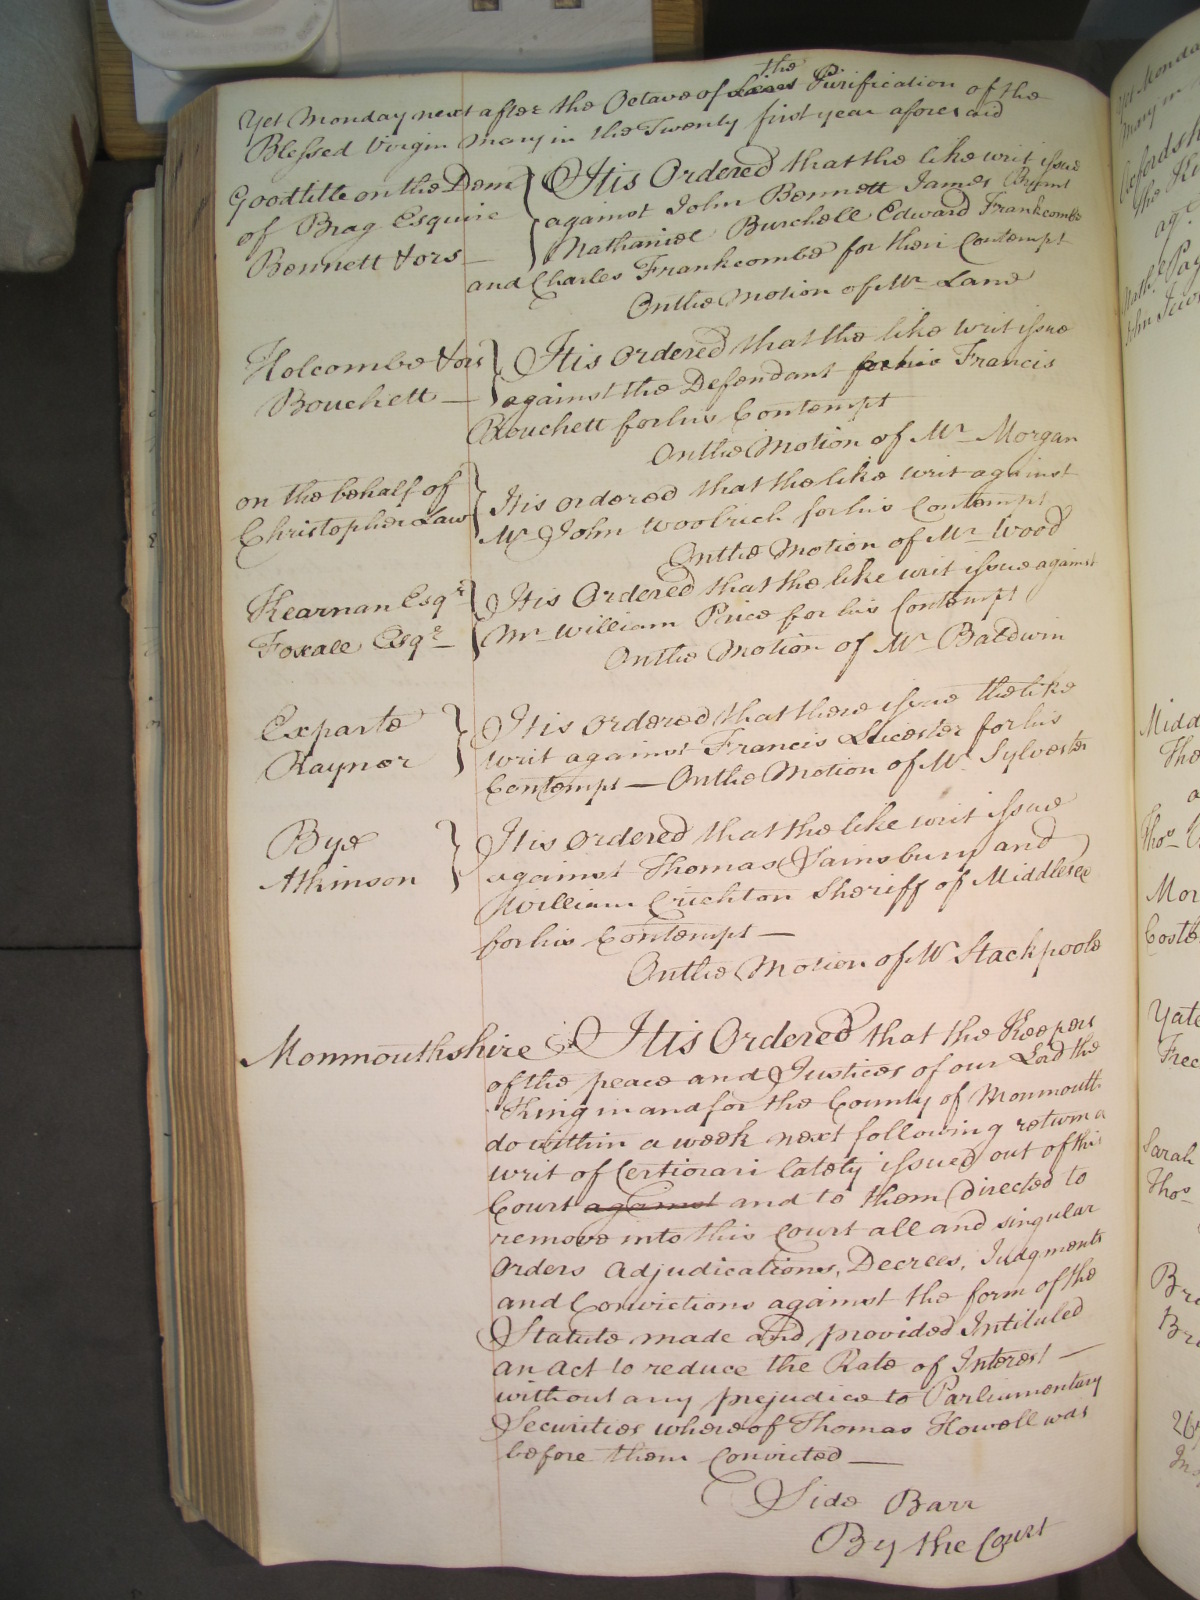 Yet Monday next after the Octave of the Purification of the
Blessed Virgin Mary in the Twenty first year aforesaid
Goodtitle on the Dem
of Brag Esquire
Bennett & ors
It is Ordered that the like writ issue
against John Bennett James Bryant
Nathaniel Burchell Edward Frankcombe
and Charles Frankcombe for their Contempt
On the Motion of Mr Lane
Holcombe & ors
Bouchett
It is ordered that the like writ issue
against the Defendant for his Francis
Bouchett for his Contempt
On the Motion of Mr Morgan
on the behalf of
Christopher Law
It is ordered that the like writ against
Mr John Woolrich for his Contempt
On the Motion of Mr Wood
Kearnan Esqr
Foxall Esqr
It is Ordered that the like writ issue against
Mr William Price for his Contempt
On the Motion of Mr Baldwin
Exparte
Raynor
It is ordered that there issue the like
writ against Francis Leicester for his
Contempt — On the Motion of Mr Sylvester
Bye
Atkinson
It is ordered that the like writ issue
against Thomas Sainsbury and
William Crichton Sheriff of Middlesex
for his Contempt —
On the Motion of Mr Stackpoole
Monmouthshire It is Ordered that the Keepers
of the peace and Justices of our Lord the
King in and for the County of Monmouth
do within a week next following return a
writ of Certiorari lately issued out of this
Court against and to them directed to
remove into this Court all and singular
Orders Adjudications, Decrees, Judgments
and Convictions against the form of the
Statute made and provided Intituled
an act to reduce the Rate of Interest —
without any prejudice to Parliamentary
Securities whereof Thomas Howell was
before them Convicted —
Side Barr
By the Court